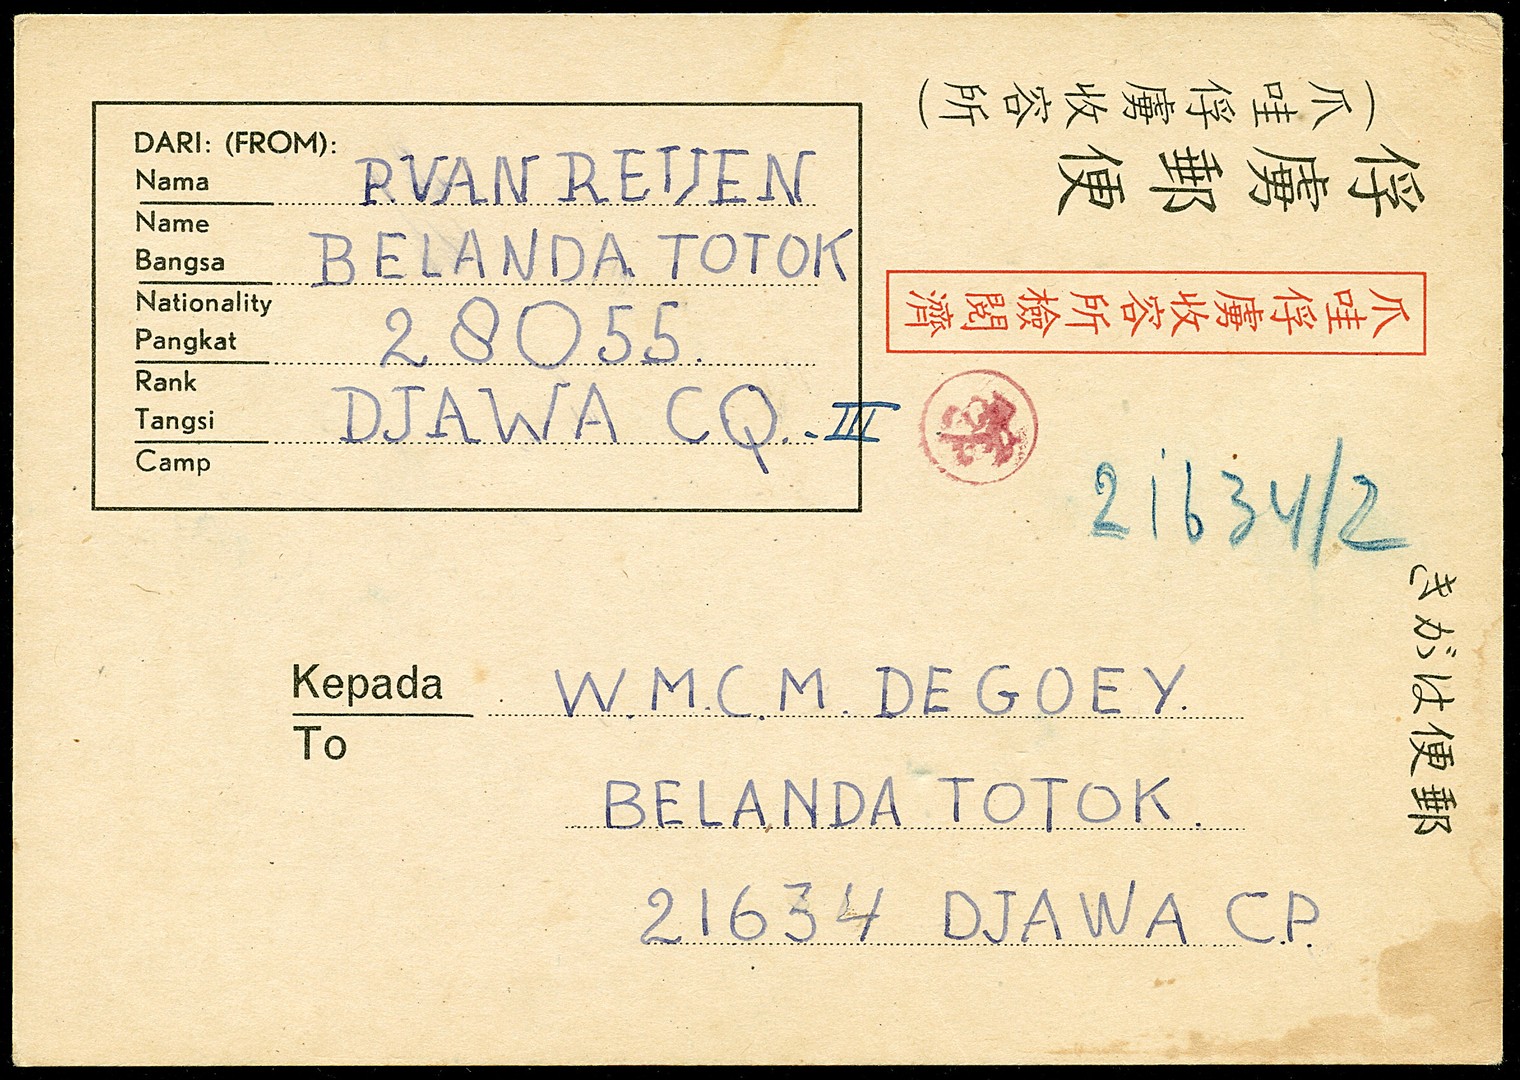 DARI: (FROM):
Nama
Name
RVAN REIJEN
Bangsa
Nationality
BELANDA TOTOK
Pangkat
Rank
28055.
Tangsi
Camp
DJAWA CQ.-III
(爪哇俘虜收容所)
俘虜郵便
爪哇俘虜收容所檢閲濟
21634/2
郵便はがき
Kepada
To
W.M.C.M. DE GOEY.
BELANDA TOTOK.
21634 DJAWA C.P.